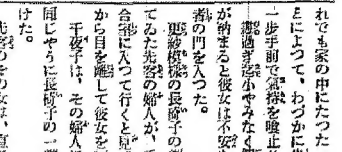 れでも家の中にたつた
とによつて、わづかに
一歩手前で氣持を喰止
晝過ぎ迄小やみなく
が納まると彼女は不安
者の門を入つた。
更紗模様の長椅子の
てゐた先客の婦人が、
合部に入つて行くと
から目を離して彼女を
千夜子は、その婦人
同じやうに長椅子の一
けた。
先客のその女は、